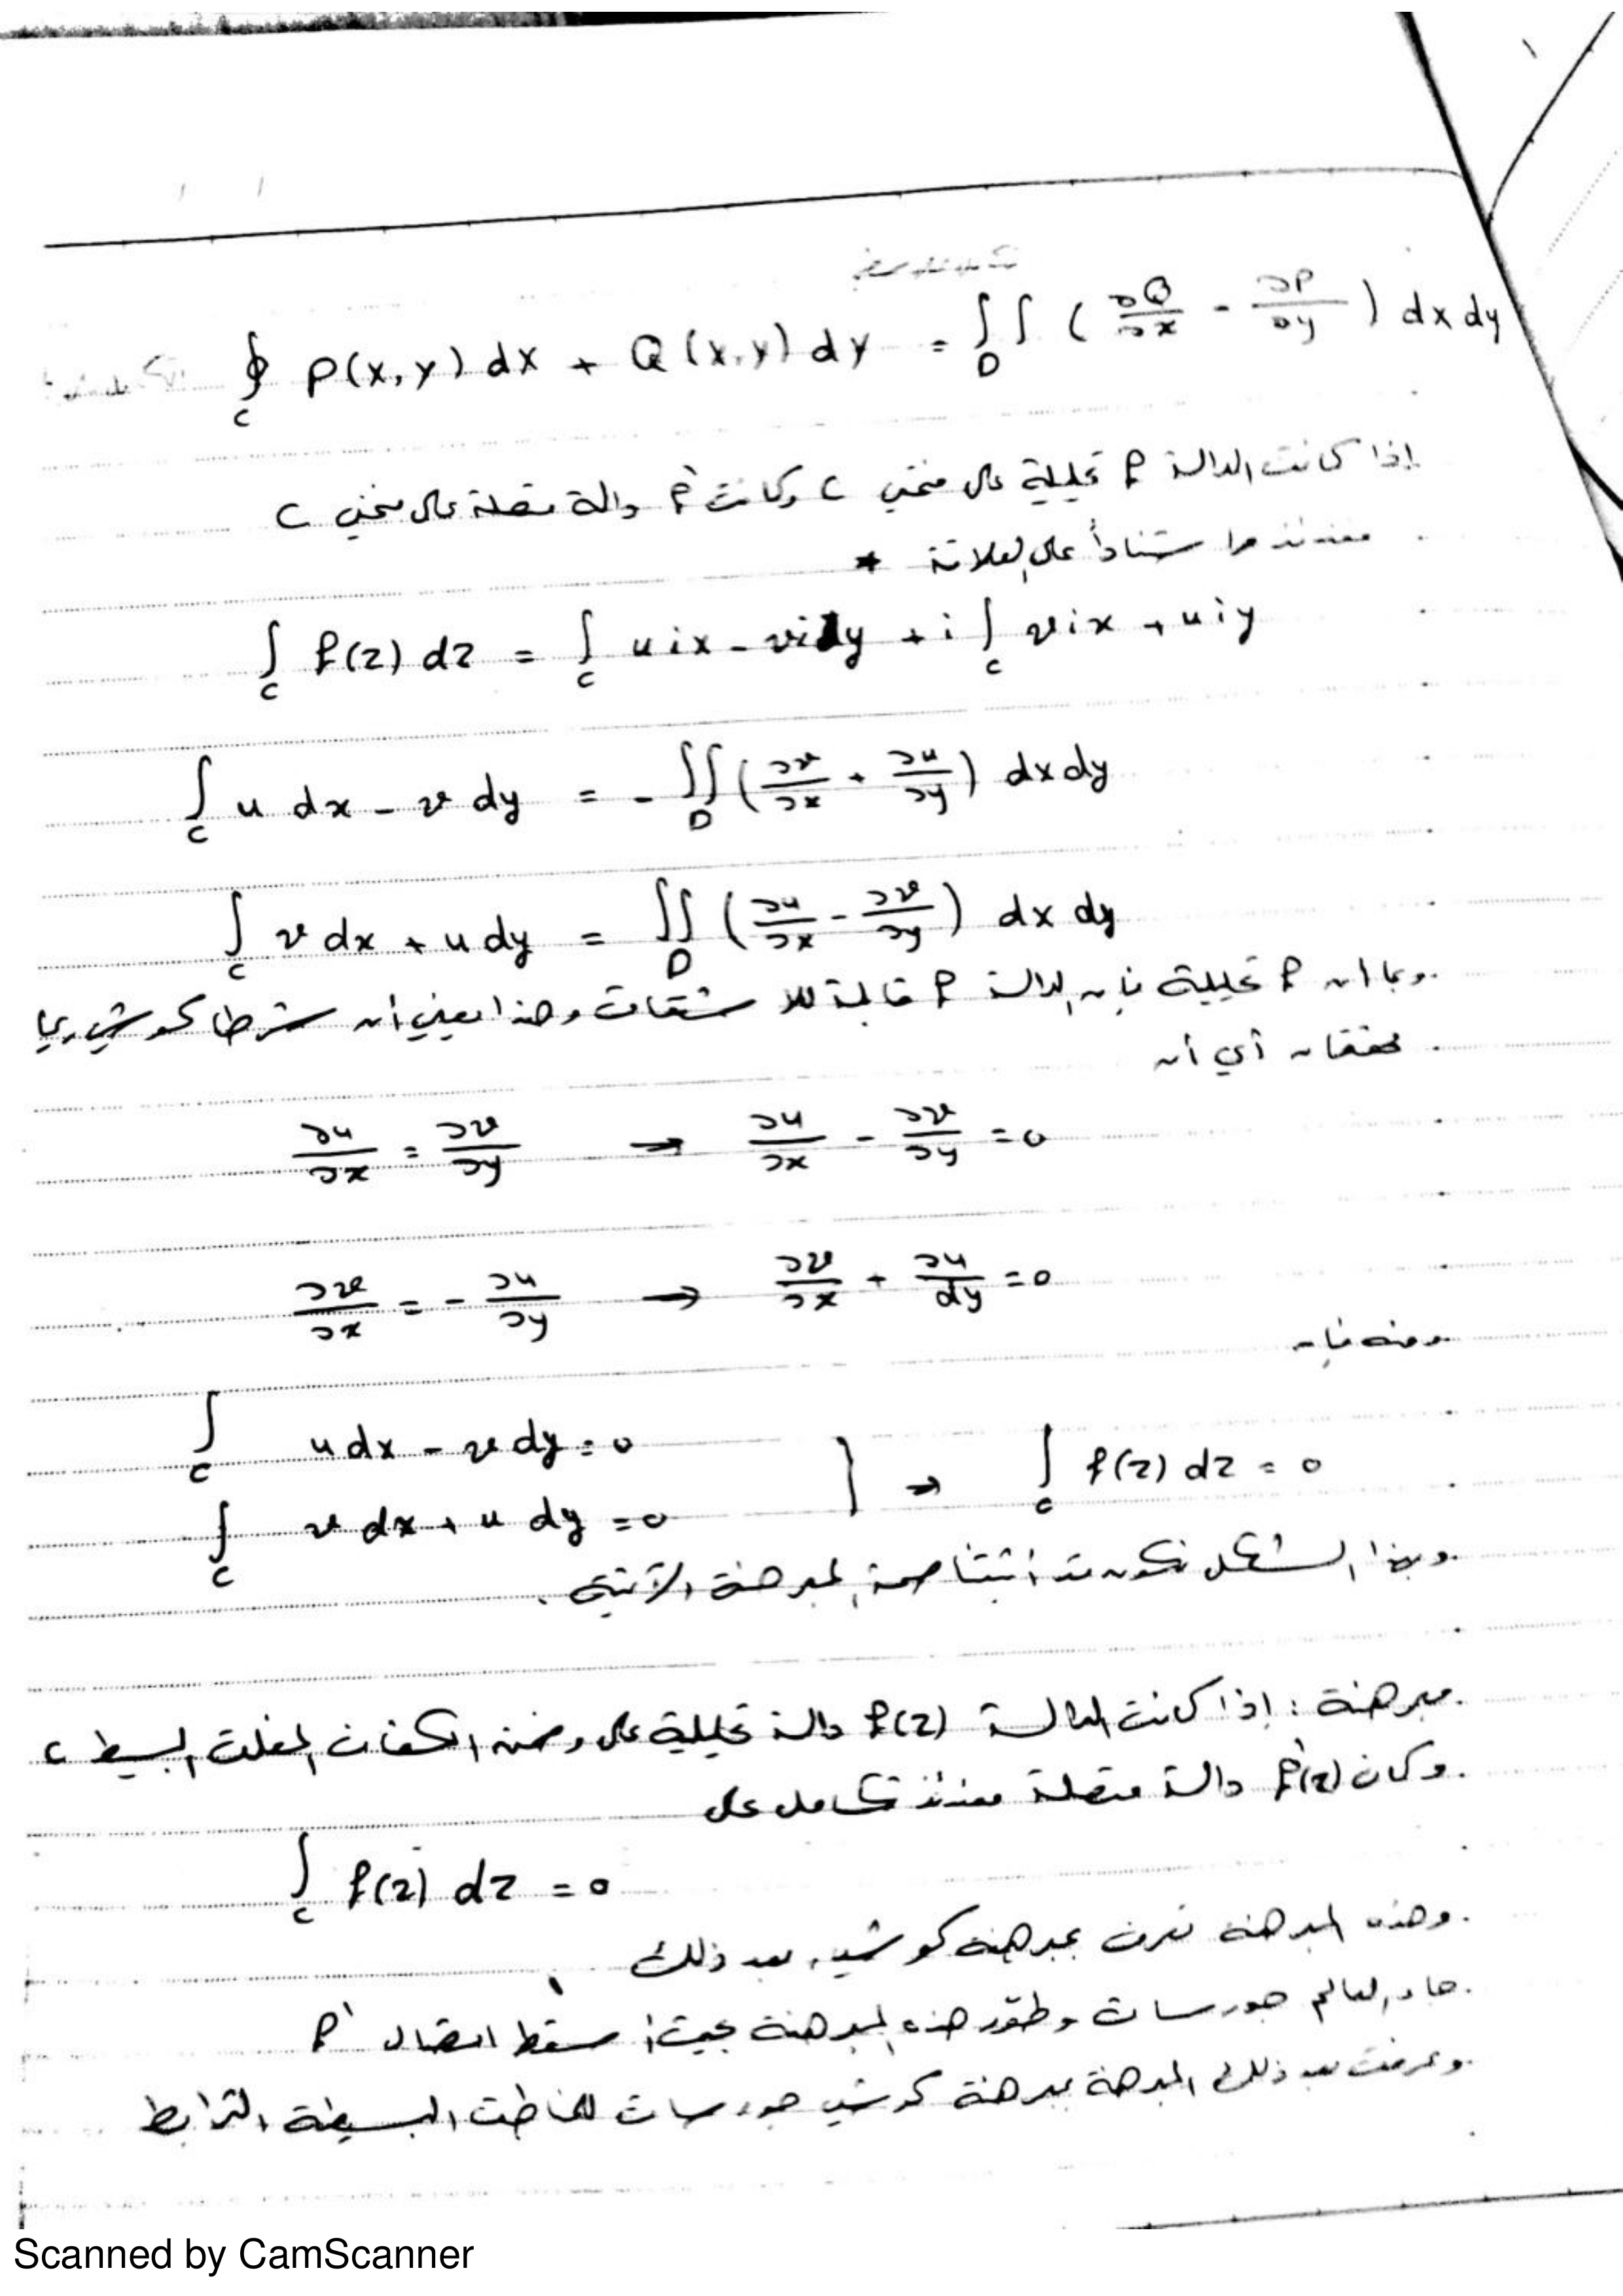 ∮_C P(x,y) dx + Q(x,y) dy = ∫∫_D (∂Q/∂x - ∂P/∂y) dx dy
إذا كانت الدالة f تحليلية على منحني C وكانت f' دالة متصلة على منحني C
عندئذ استناداً على العلاقة *
∫_C f(z) dz = ∫_C u ix - v idy + i ∫_C v ix + u iy
∫_C u dx - v dy = - ∬_D (∂v/∂x + ∂u/∂y) dx dy
∫_C v dx + u dy = ∬_D (∂u/∂x - ∂v/∂y) dx dy
وبما ان f تحليلية فإن الدالة f قابلة للاشتقاق وهذا يعني أن شرطا كوشي ريما
محققان أي أن
∂u/∂x = ∂v/∂y → ∂u/∂x - ∂v/∂y = 0
∂v/∂x = - ∂u/∂y → ∂v/∂x + ∂u/dy = 0
ومنه فإن
∫_C u dx - v dy = 0
∫_C v dx + u dy = 0 } → ∫_C f(z) dz = 0
وبهذا الشكل نكون قد اثبتنا صحة المبرهنة الآتية .
مبرهنة : إذا كانت الدالة f(z) دالة تحليلية على وضمن المغلق البسيط C
وكان f'(z) دالة متصلة عندئذ تكامل على
∫_C f(z) dz = 0
وهذه المبرهنة تعرف بمبرهنة كوشي، بعد ذلك
جاء العالم جورسات وطور هذه المبرهنة بحيث اسقط اتصال f'
وعرفت بعد ذلك المبرهنة بمبرهنة كوشي جورسات للمناطق البسيطة الترابط
Scanned by CamScanner